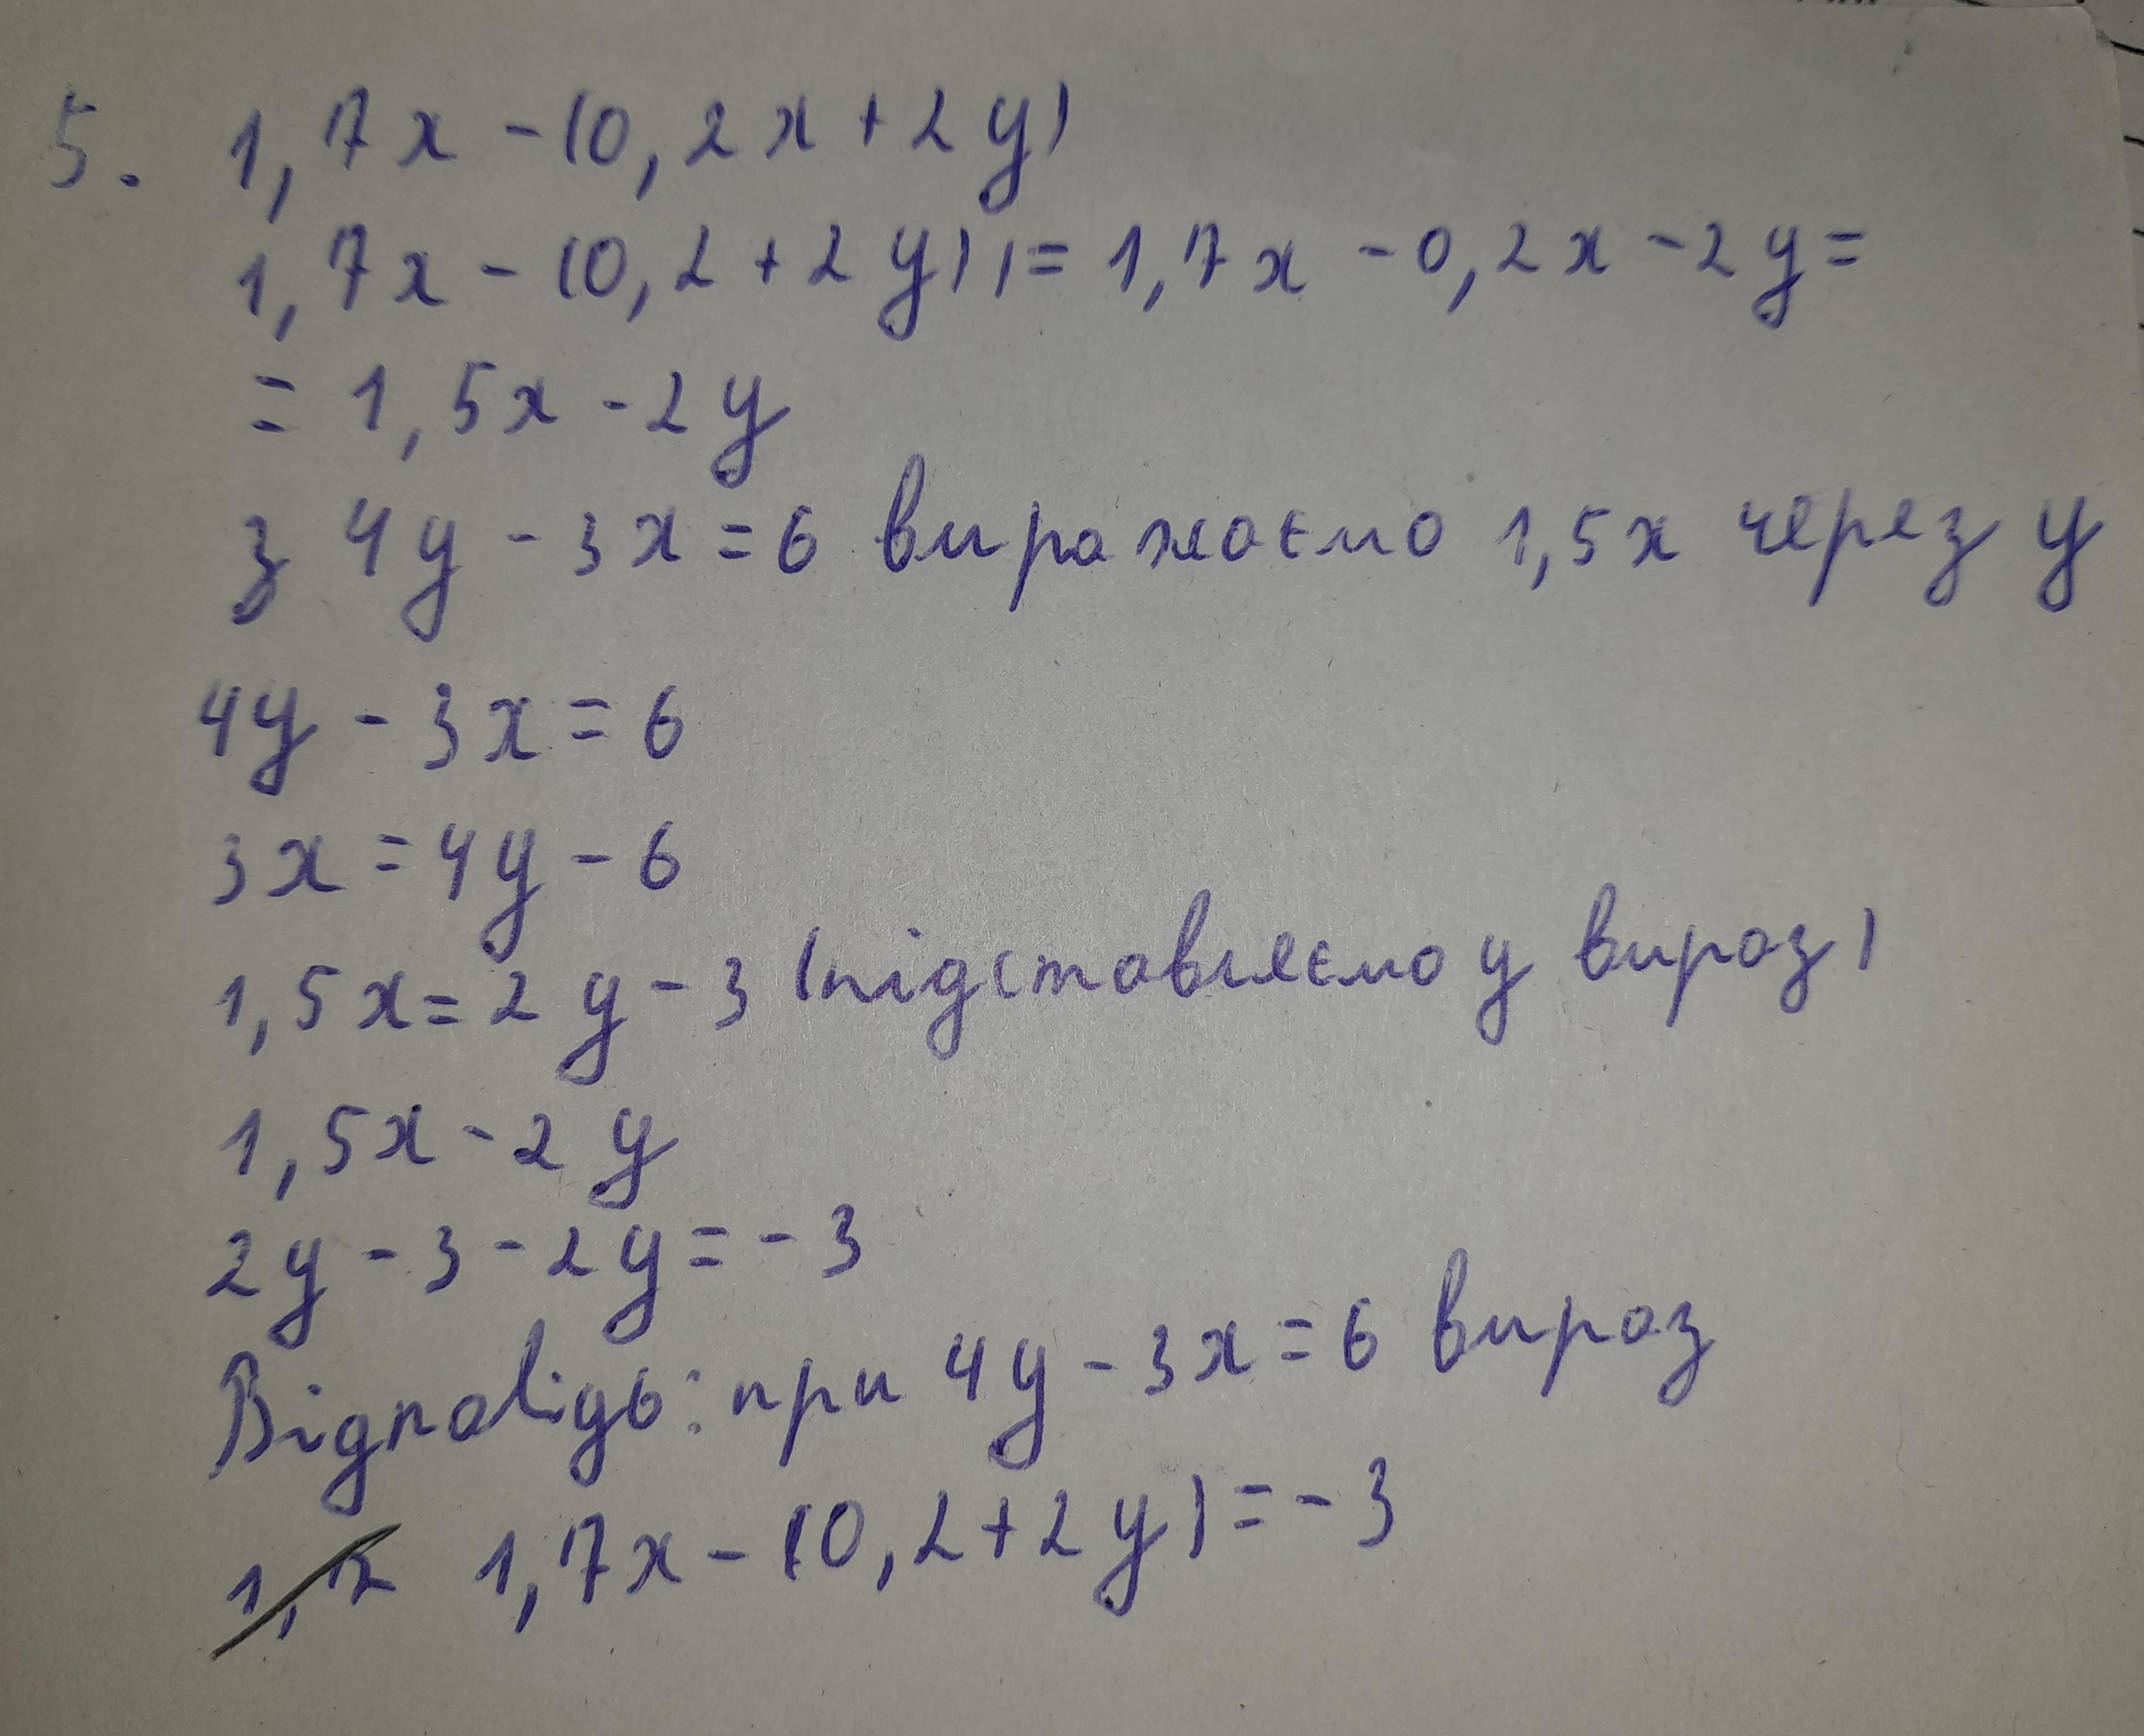 5. 1,7x - (0,2x + 2y)
1,7x - (0,2 + 2y)) = 1,7x - 0,2x - 2y =
= 1,5x - 2y
з 4y - 3x = 6 виражаємо 1,5x через y
4y - 3x = 6
3x = 4y - 6
1,5x = 2y - 3 (підставляємо у вираз)
1,5x - 2y
2y - 3 - 2y = - 3
Відповідь: при 4y - 3x = 6 вираз
1,7 1,7x - (0,2 + 2y) = - 3